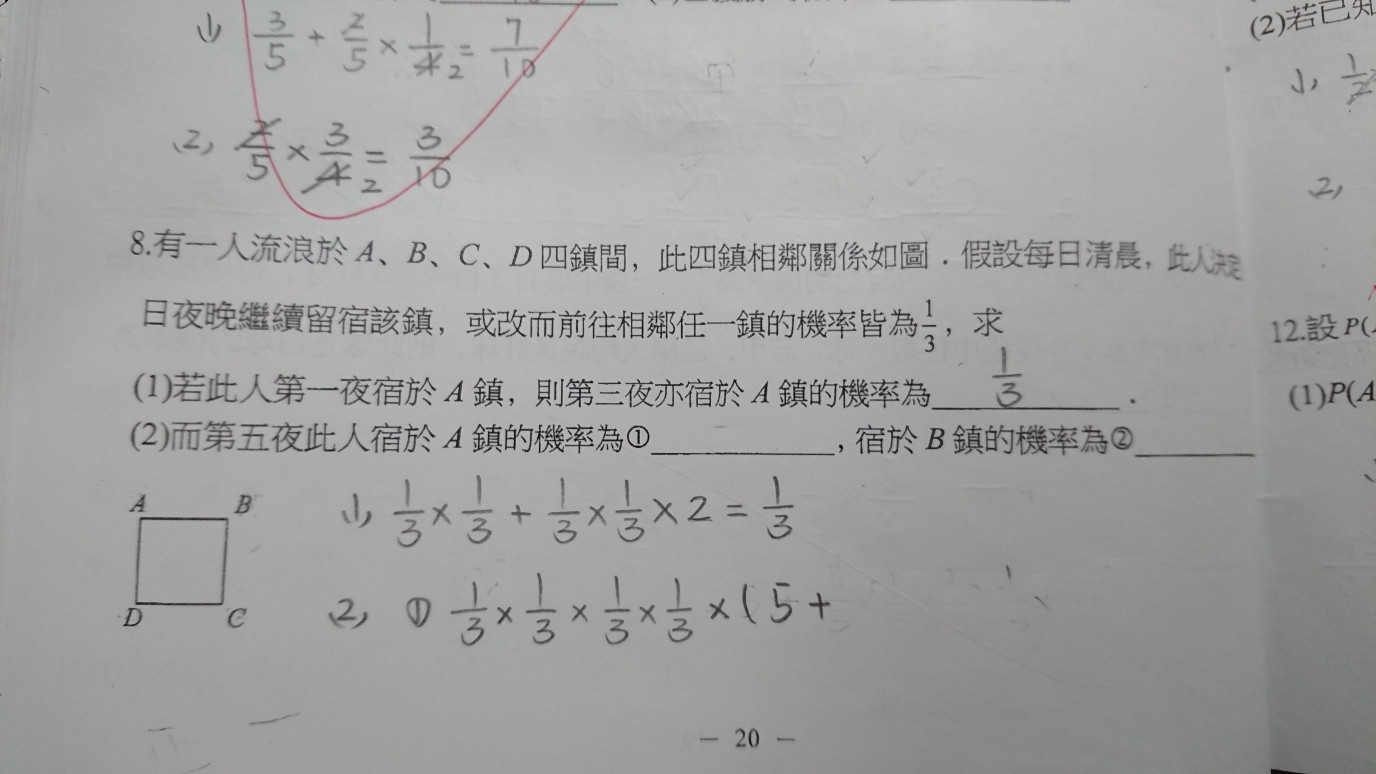 (1) 3/5 + 2/5 × 1/4 2 = 7/10
(2)若已知
(1) 1/2
(2) 2/5 × 3/4 2 = 3/10
(2)
8.有一人流浪於 A、B、C、D 四鎮間，此四鎮相鄰關係如圖．假設每日清晨，此人決定
日夜晚繼續留宿該鎮，或改而前往相鄰任一鎮的機率皆為 1/3，求
12.設 P(
(1)若此人第一夜宿於 A 鎮，則第三夜亦宿於 A 鎮的機率為 1/3 ．
(1)P(A
(2)而第五夜此人宿於 A 鎮的機率為①________，宿於 B 鎮的機率為②________
A B
D C
(1) 1/3 × 1/3 + 1/3 × 1/3 × 2 = 1/3
(2) ① 1/3 × 1/3 × 1/3 × 1/3 × ( 5 +
— 20 —